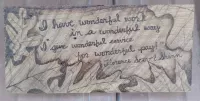 I have wonderful work
in a wonderful way
I give wonderful service
for wonderful pay!
Florence Scovel Shinn